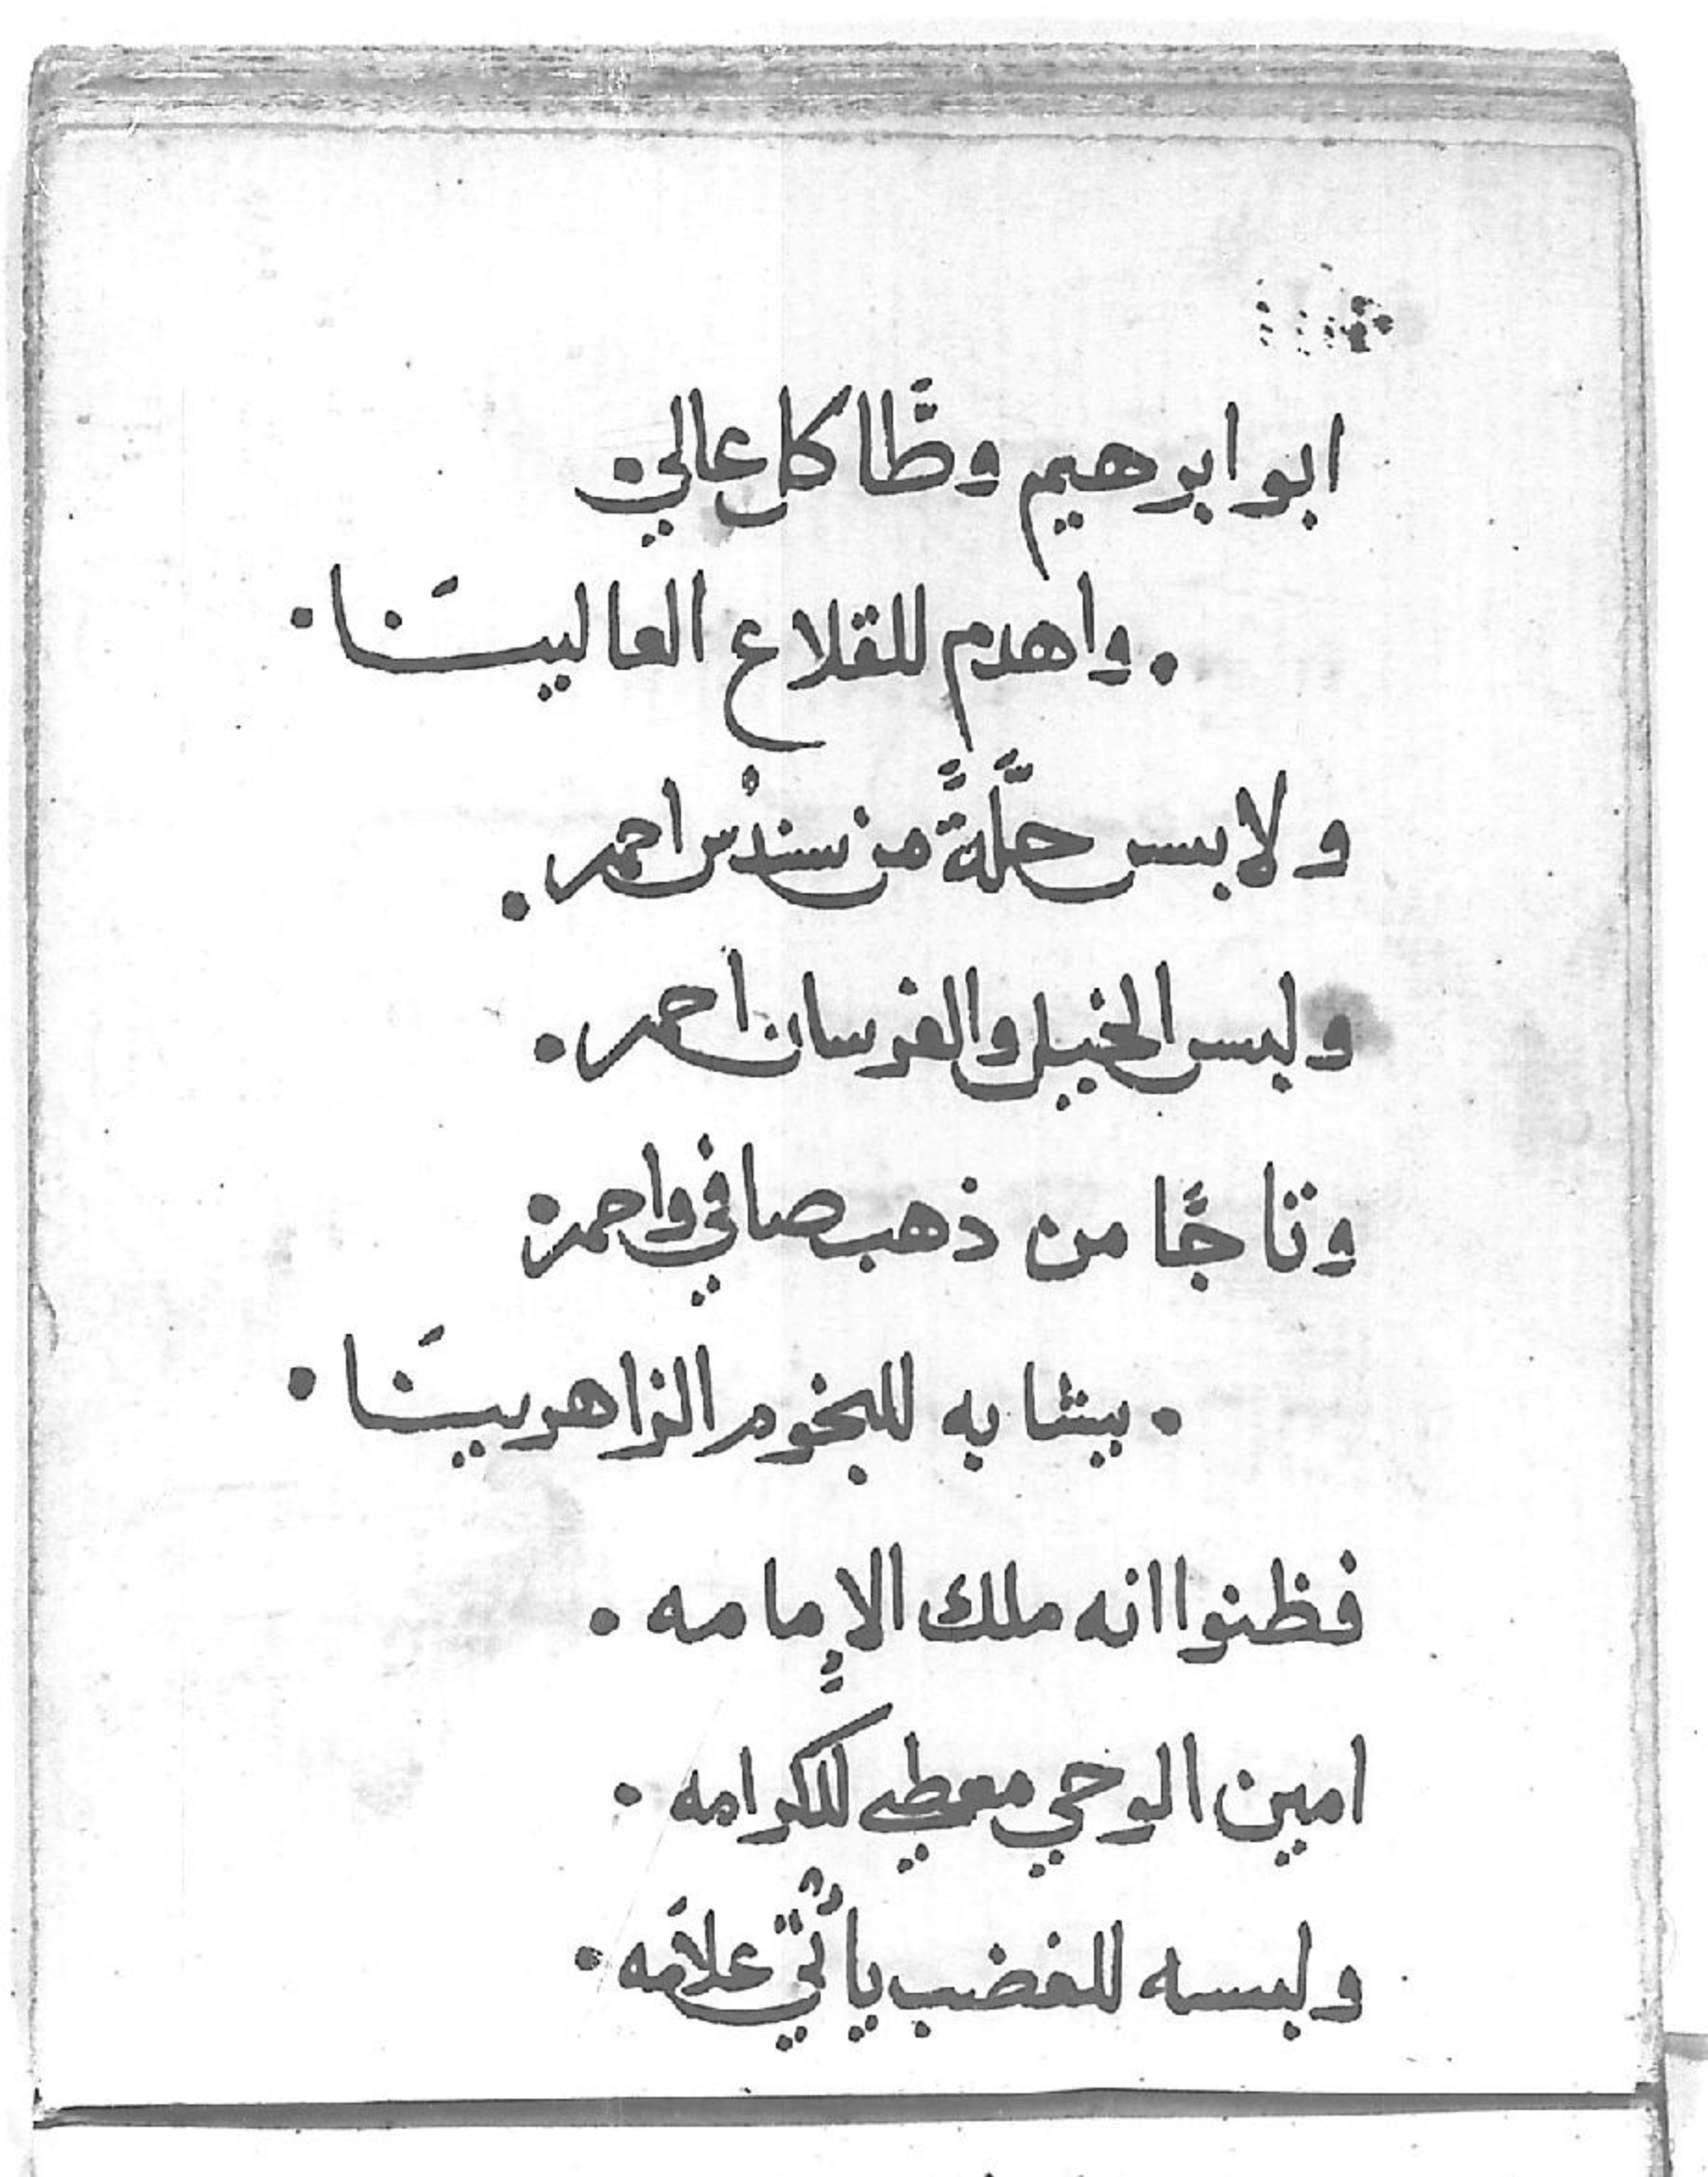 ابو ابرهيم وطَّا كل عالي
. واهدم للقلاع العاليينَا .
ولابس حلَّةً من سندْس احمر .
ولبس الخيل والفرسان احمر .
وتاجًا من ذهب صافي واحمر
. يشابه للنجوم الزاهريينَا .
فظنوا انه ملك الإمامه .
امين الوحي معطي للكرامه .
ولبسه للغضب يأتي علامَه .